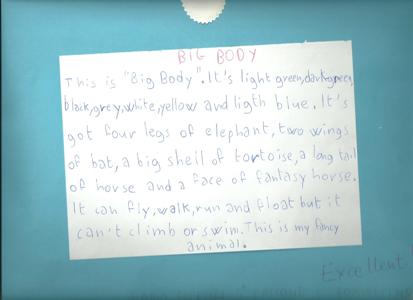 BIG BODY
This is "Big Body". It's light green, dark green,
black, grey, white, yellow and ligth blue. It's
got four legs of elephant, two wings
of bat, a big shell of tortoise, a long tail
of horse and a face of fantasy horse.
It can fly, walk, run and float but it
can't climb or swim. This is my fancy
animal.
Excellent